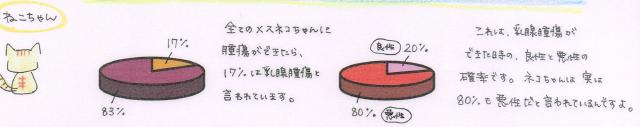 ねこちゃん
17%
83%
全てのメスネコちゃんに
腫瘍ができたら、
17%は乳腺腫瘍と
言われています。
良性 20%
80% 悪性
これは、乳腺腫瘍が
できた時の、良性と悪性の
確率です。ネコちゃんは実は
80%も悪性だと言われているんですよ。